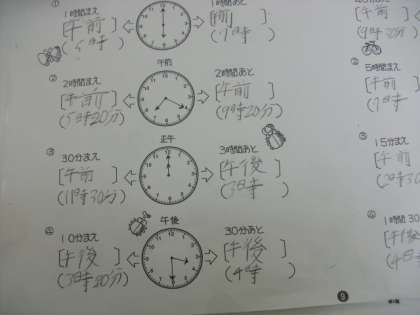 ①
1時間まえ
[午前]
1時間あと
[前]
(7時)
午前
②
2時間まえ
[午前]
(5時20分)
2時間あと
[午前]
(9時20分)
正午
③
30分まえ
[午前]
(11時30分)
3時間あと
[午後]
(3時)
午後
④
10分まえ
[午後]
(3時20分)
30分あと
[午後]
(4時)
[午前]
(9時20分)
②
5時間まえ
[午前]
③
15分まえ
[午前]
④
1時間30
8